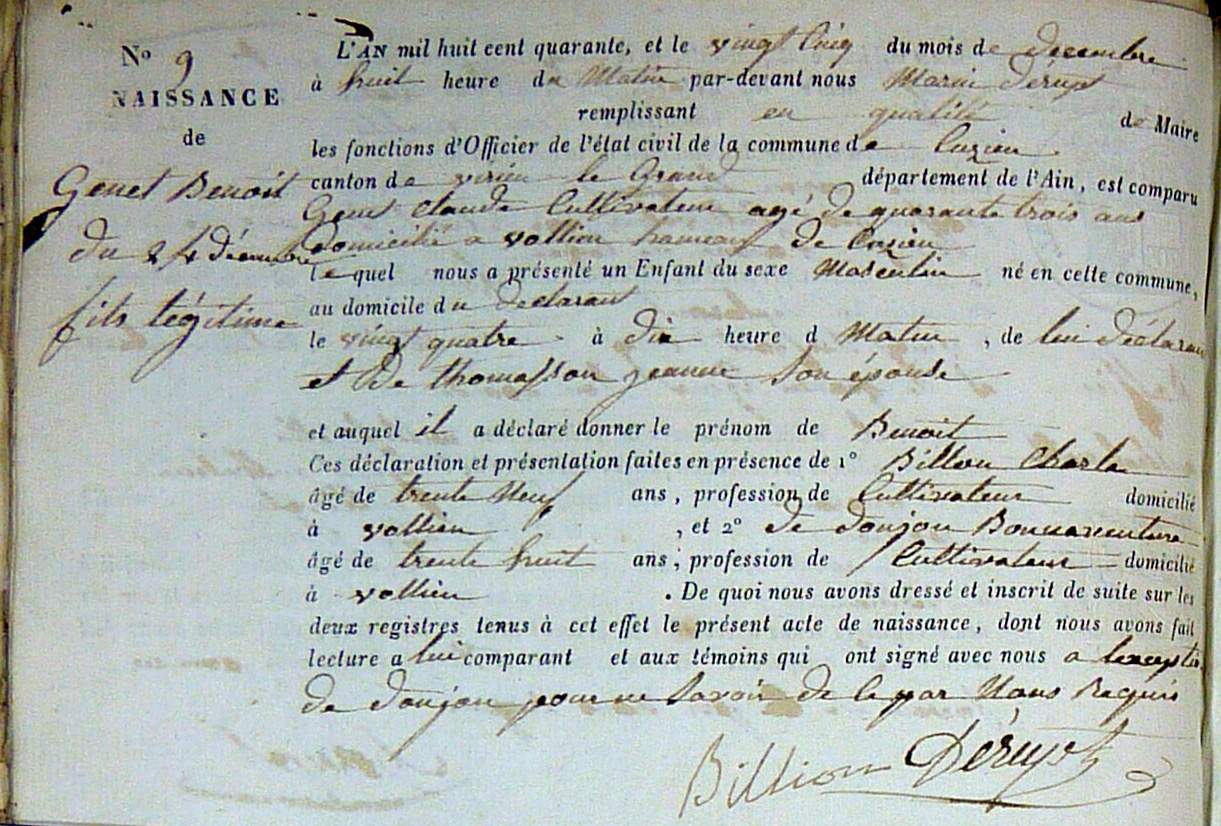 No 9
NAISSANCE
de
Genet Benoit
du 24 décembre
fils légitime
L'AN mil huit cent quarante, et le vingt Cinq du mois de decembre
à huit heure du Matin par-devant nous Marin Dérupt
remplissant en qualité de Maire
les fonctions d'Officier de l'état civil de la commune de Cuzieu
canton de virieu le Grand département de l'Ain, est comparu
Genet Claude Cultivateur agé de quarante trois ans
domicilié a vollien hameau de Cuzieu
lequel nous a présenté un Enfant du sexe Masculin né en cette commune,
au domicile du declarant
le vingt quatre à dix heure d Matin, de lui déclarant
et De thomasson jeanne son épouse
et auquel il a déclaré donner le prénom de Benoit
Ces déclaration et présentation faites en présence de 1° Billion Charle
âgé de trente Neuf ans, profession de Cultivateur domicilié
à vollien, et 2° De donjon Bonnaventure
âgé de trente huit ans, profession de Cultivateur domicilié
à vollien. De quoi nous avons dressé et inscrit de suite sur les
deux registres tenus à cet effet le présent acte de naissance, dont nous avons fait
lecture a lui comparant et aux témoins qui ont signé avec nous a
de donjon pour ne savoir de ce par Nous Requis
Billion Dérupt